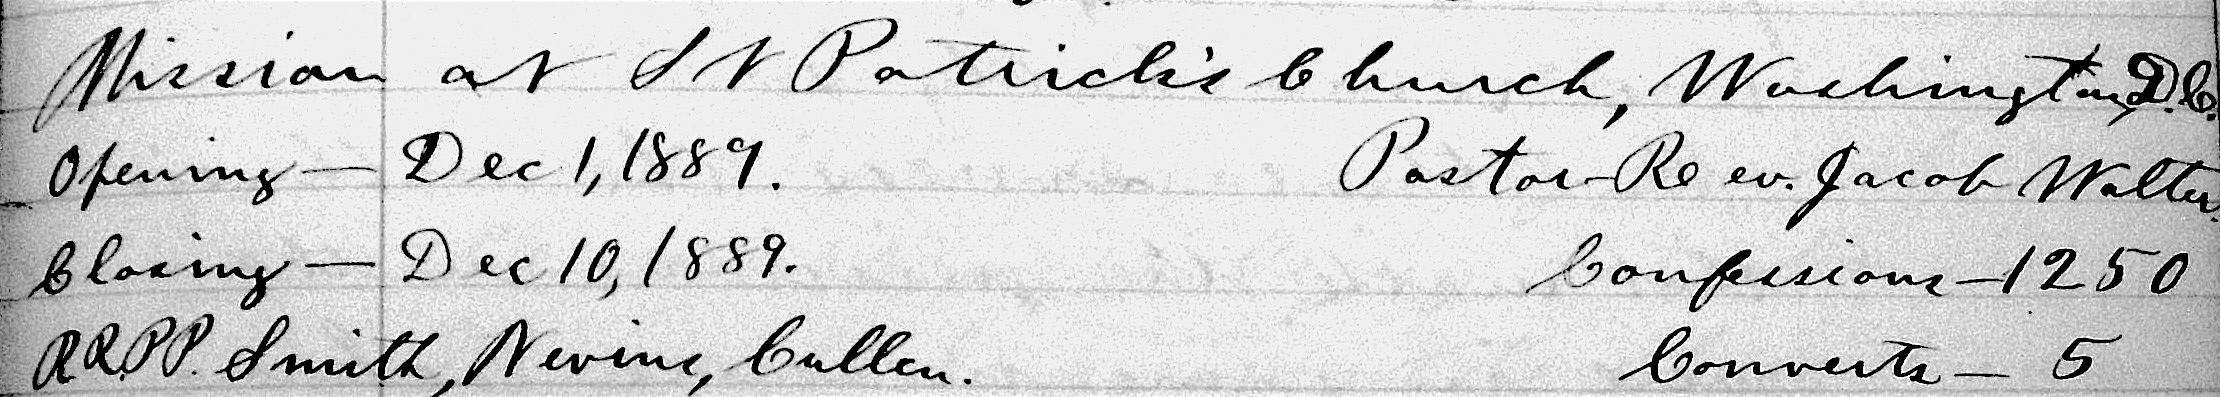 Mission at St Patrick's Church, Washington, D.C.
Opening — Dec 1, 1889. Pastor - Rev. Jacob Walter.
Closing — Dec 10, 1889. Confessions — 1250
RR.PP. Smith, Nevins, Cullen. Converts — 5